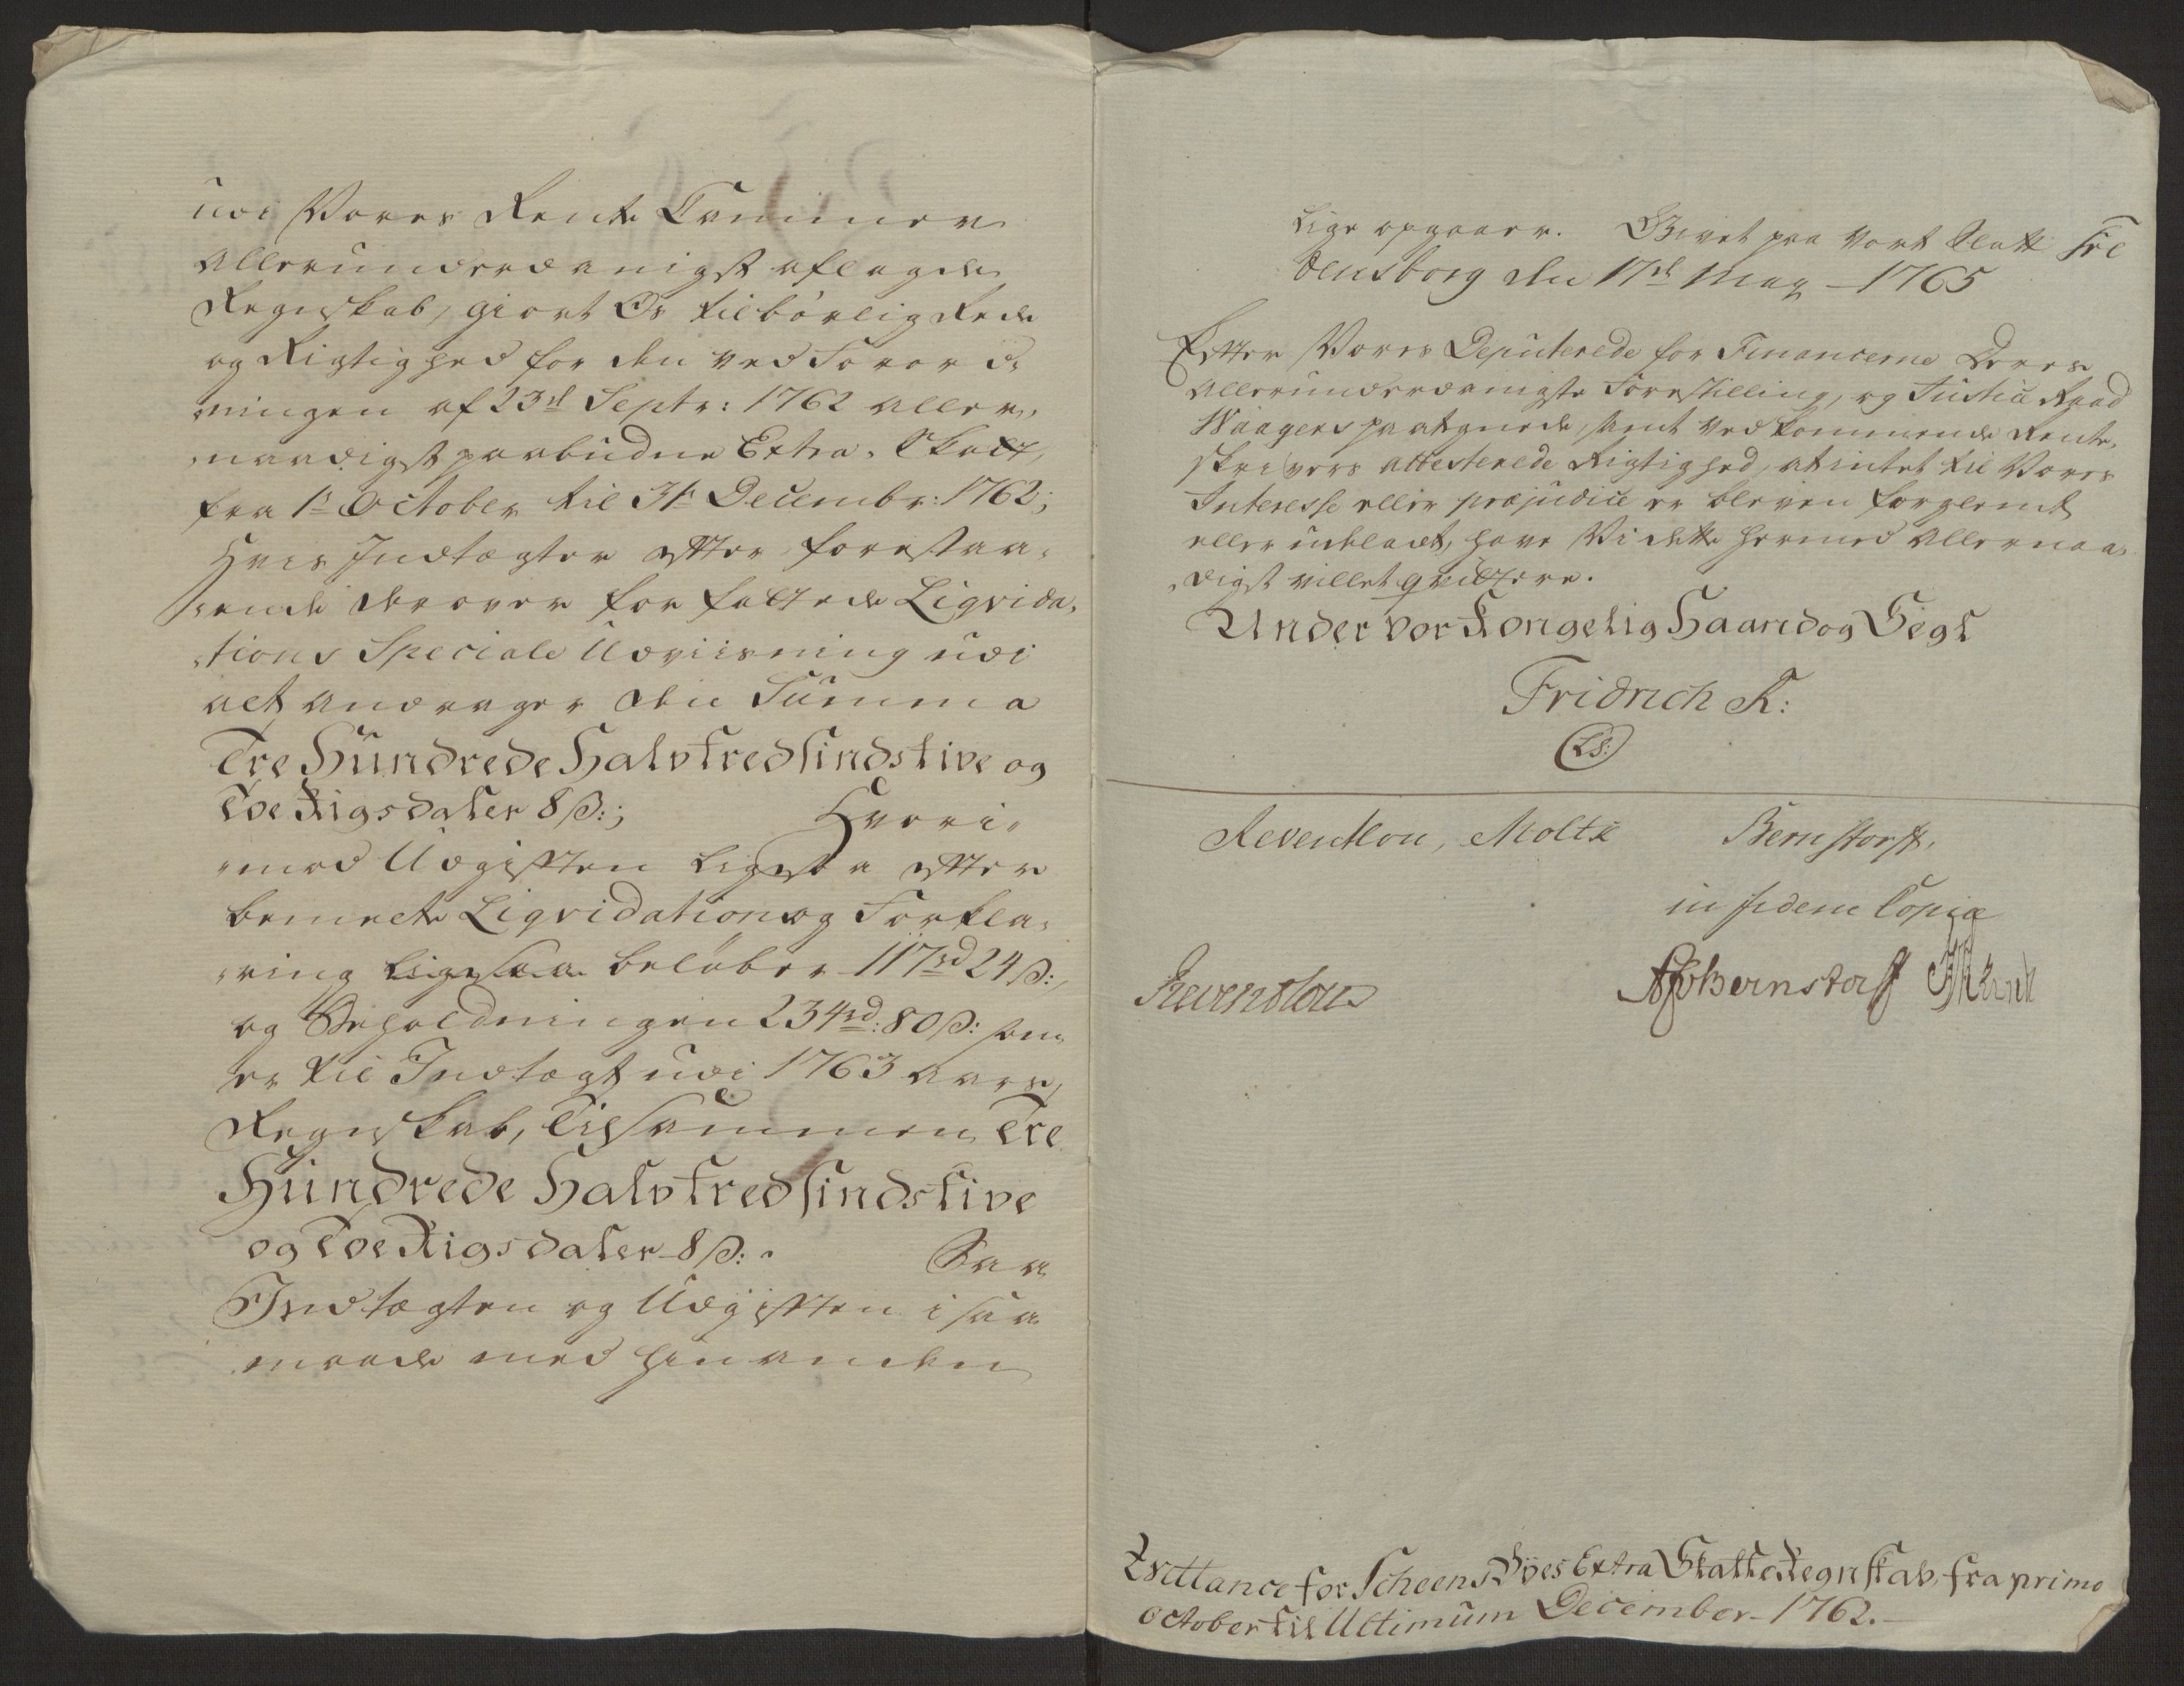 udi Vores Rente Cammer
Allerunderdanigst aflagde
Regnskab, giort Os tilbørlig Rede
og Rigtighed for den ved Forord,
ningen af 23d Septr: 1762 aller,
naadigst paabudne Extra-Skatt,
fra 1s October til 31s Decembr: 1762;
Hvis Indtægter efter forestaa,
ende derover forfattede Liqvida,
tions Speciale Udviisning udi
alt andrager den Summa
Tre Hundrede Halvtredsindstive og
Toe Rigsdaler 8 ß:; Hvori,
mod Udgiften ligesaa efter
bemelte Liqvidation og Forkla,
ring ligesaa beløber 117rd 24 ß:,
og Beholdningen 234rd: 80 ß: som
er til Indtægt udi 1763 Aars
Regnskab, Tilsammen Tre
Hundrede Halvtredsindstive
og Toe Rigsdaler 8 ß:. Saa
Indtægten og Udgiften i saa
maade med hinanden
lige opgaaer. Givet paa Vort Slott Fre
densborg den 17d May 1765
Efter Vores Deputerede for Financerne Deres
allerunderdanigste Forestilling, og Justice Raad
Waagers paategnede, samt Vedkommende Rente,
skrivers attesterede Rigtighed, at intet til Vores
Interesse eller præjudice er bleven forglemt
eller udeladt, have Vi dette hermed Allernaa,
digst villet qvittere.
Under vor Kongelig Haand og Segl
Fridrich R:
(LS:)
Reventlou, Moltke Bernstorff.
in fidem Copiæ
Reventlou AGBernstorff
Qvittance for Scheens Byes Extra Skatte Regnskab, fra primo
October til Ultimum December 1762.